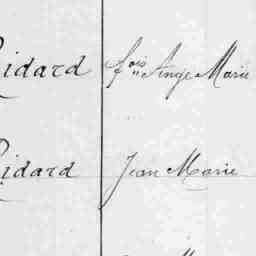 Ridard fois Ange Marie
Ridard Jean Marie